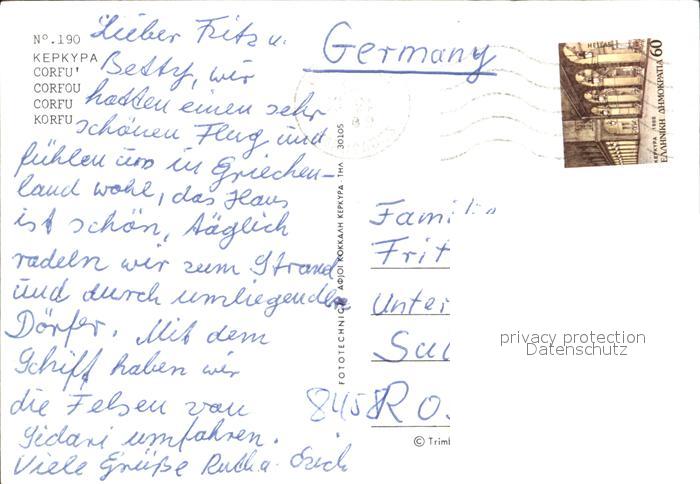 Nº.190
ΚΕΡΚΥΡΑ
CORFU'
CORFOU
CORFU
KORFU
Lieber Fritz u.
Betty, wir
hatten einen sehr
schönen Flug und
fühlen uns in Griechen-
land wohl, das Haus
ist schön, täglich
radeln wir zum Strand
und durch umliegenden
Dörfer. Mit dem
Schiff haben wir
die Felsen von
Sidari umfahren.
Viele Grüße Rutha. Erich
FOTOTECHNICA ΑΦΙΟΙ ΚΟΚΚΑΛΗ ΚΕΡΚΥΡΑ - ΤΗΛ. 30105
Germany
HELLAS
60
ΚΕΡΚΥΡΑ 1988
ΕΛΛΗΝΙΚΗ ΔΗΜΟΚΡΑΤΙΑ
Fami
Frit
Unter
Sul
8458 RO.
privacy protection
Datenschutz
© Trim